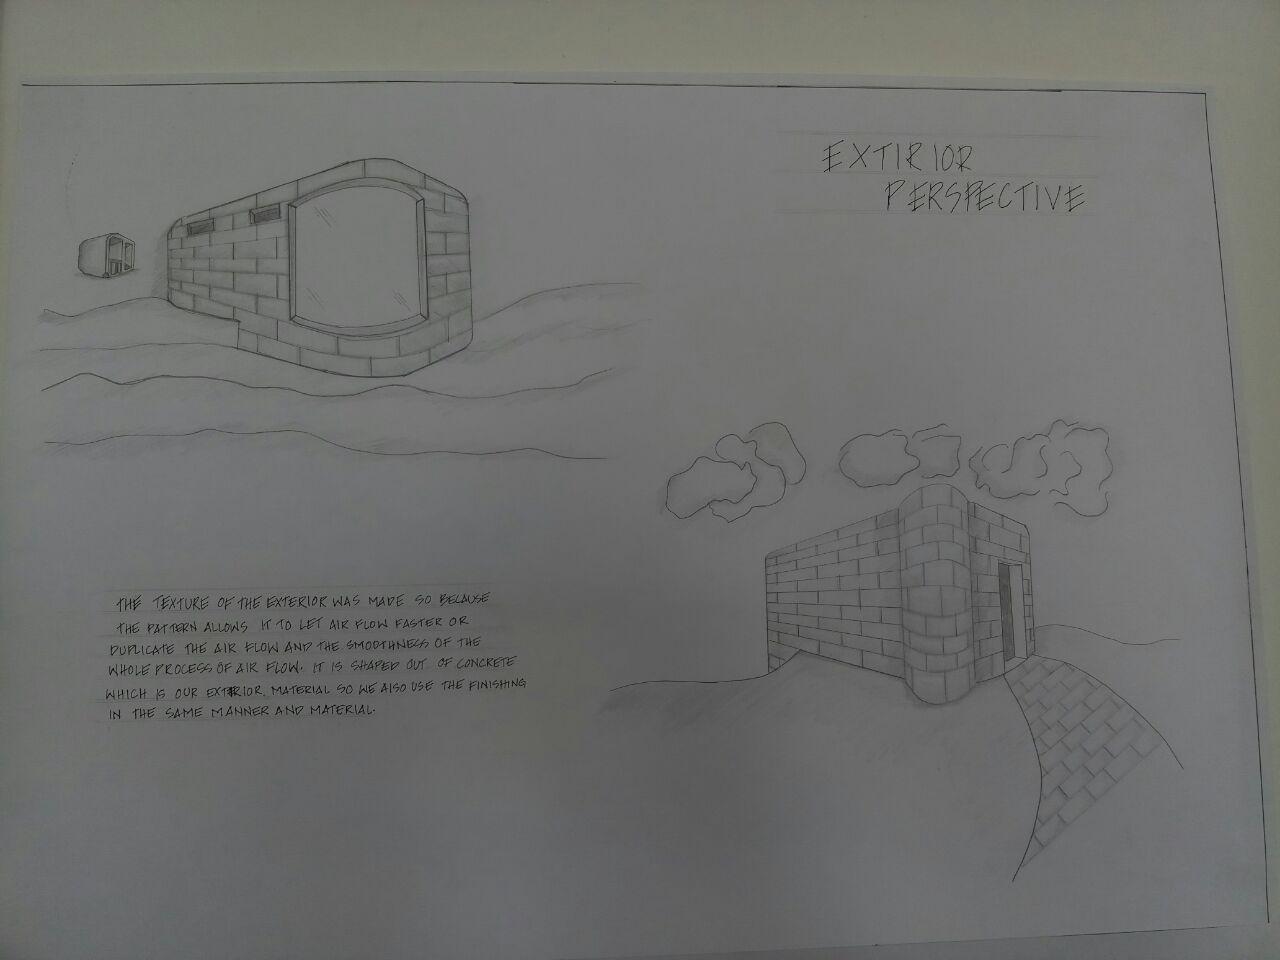 EXTIRIOR
PERSPECTIVE
THE TEXTURE OF THE EXTERIOR WAS MADE SO BECAUSE
THE PATTERN ALLOWS IT TO LET AIR FLOW FASTER OR
DUPLICATE THE AIR FLOW AND THE SMOOTHNESS OF THE
WHOLE PROCESS OF AIR FLOW. IT IS SHAPED OUT OF CONCRETE
WHICH IS OUR EXTRIOR MATERIAL SO WE ALSO USE THE FINISHING
IN THE SAME MANNER AND MATERIAL.